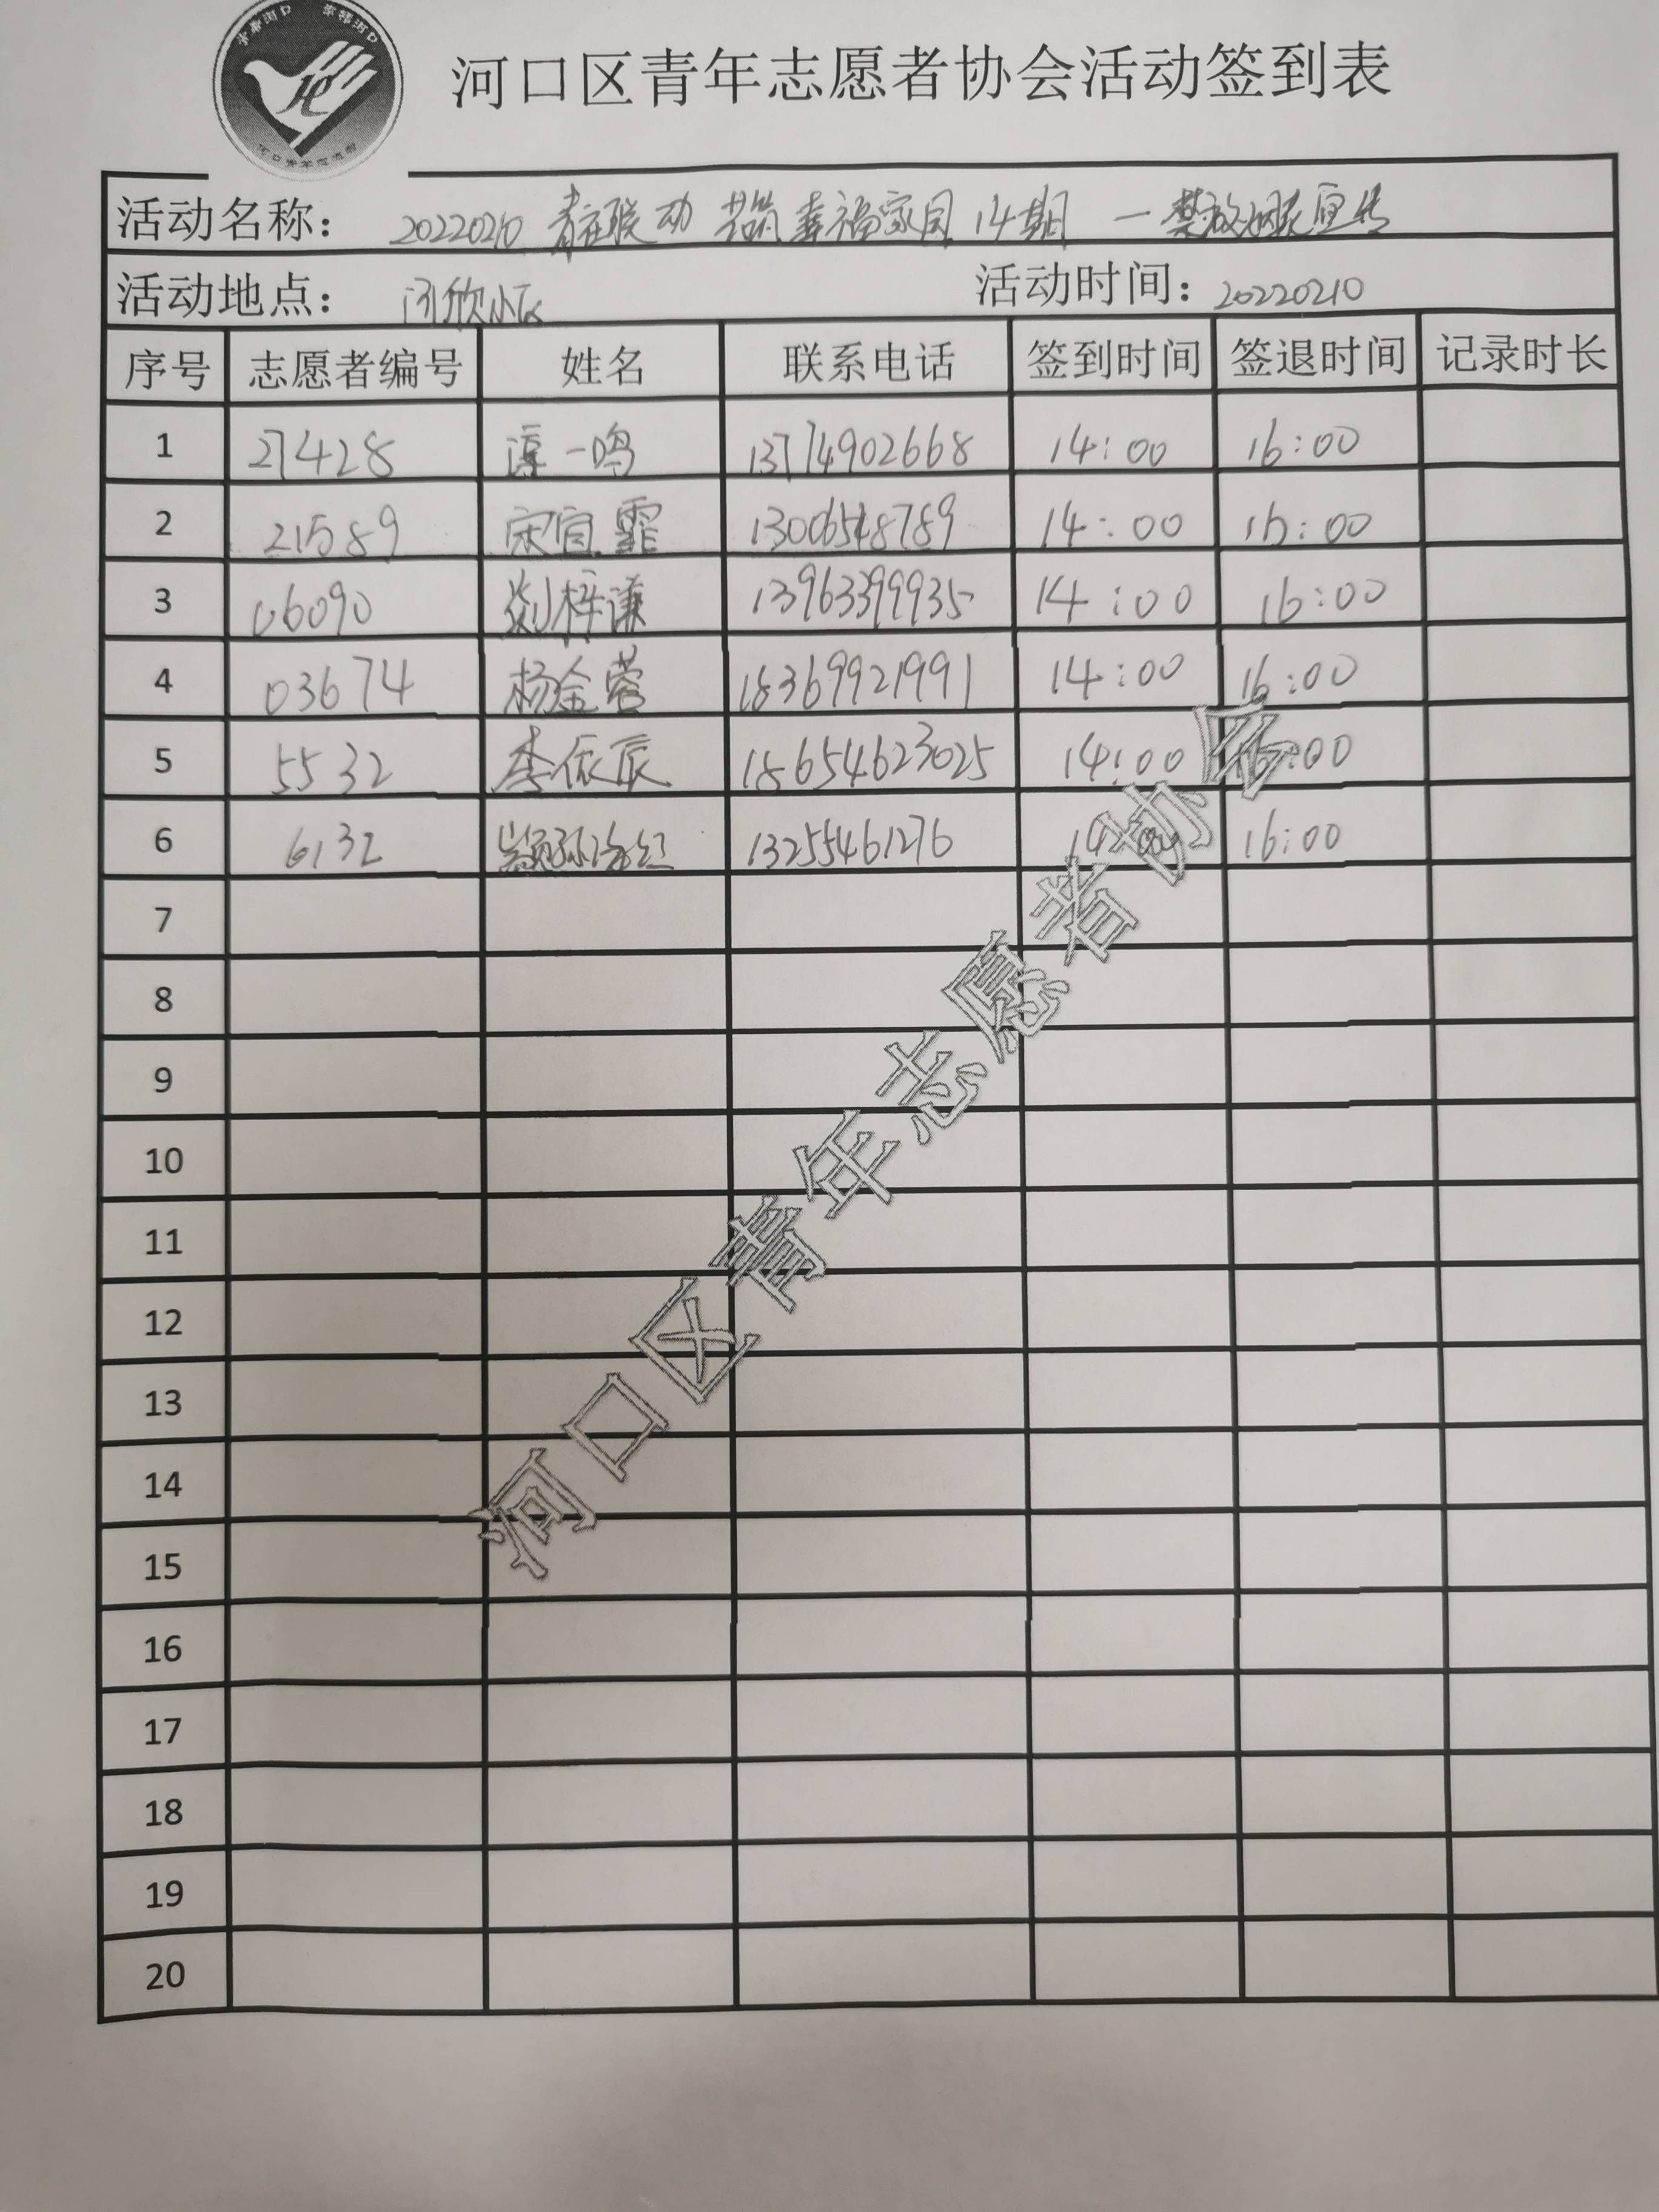 河口区青年志愿者协会活动签到表
活动名称： 20220210 青社联动 共筑幸福家园 14期 一禁放烟花宣传
活动地点： 河欣小区 活动时间：20220210
序号 志愿者编号 姓名 联系电话 签到时间 签退时间 记录时长
1 27428 一鸣 13774902668 14:00 16:00
2 21589 宋宜霏 13006548789 14:00 16:00
3 06090 刘梓谦 13963399935 14:00 16:00
4 03674 杨金蓉 18369921991 14:00 16:00
5 5532 李依辰 18654623025 14:00 16:00
6 6132 13255461276 14:00 16:00
7
8
9
10
11
12
13
14
15
16
17
18
19
20
河口区青年志愿者协会